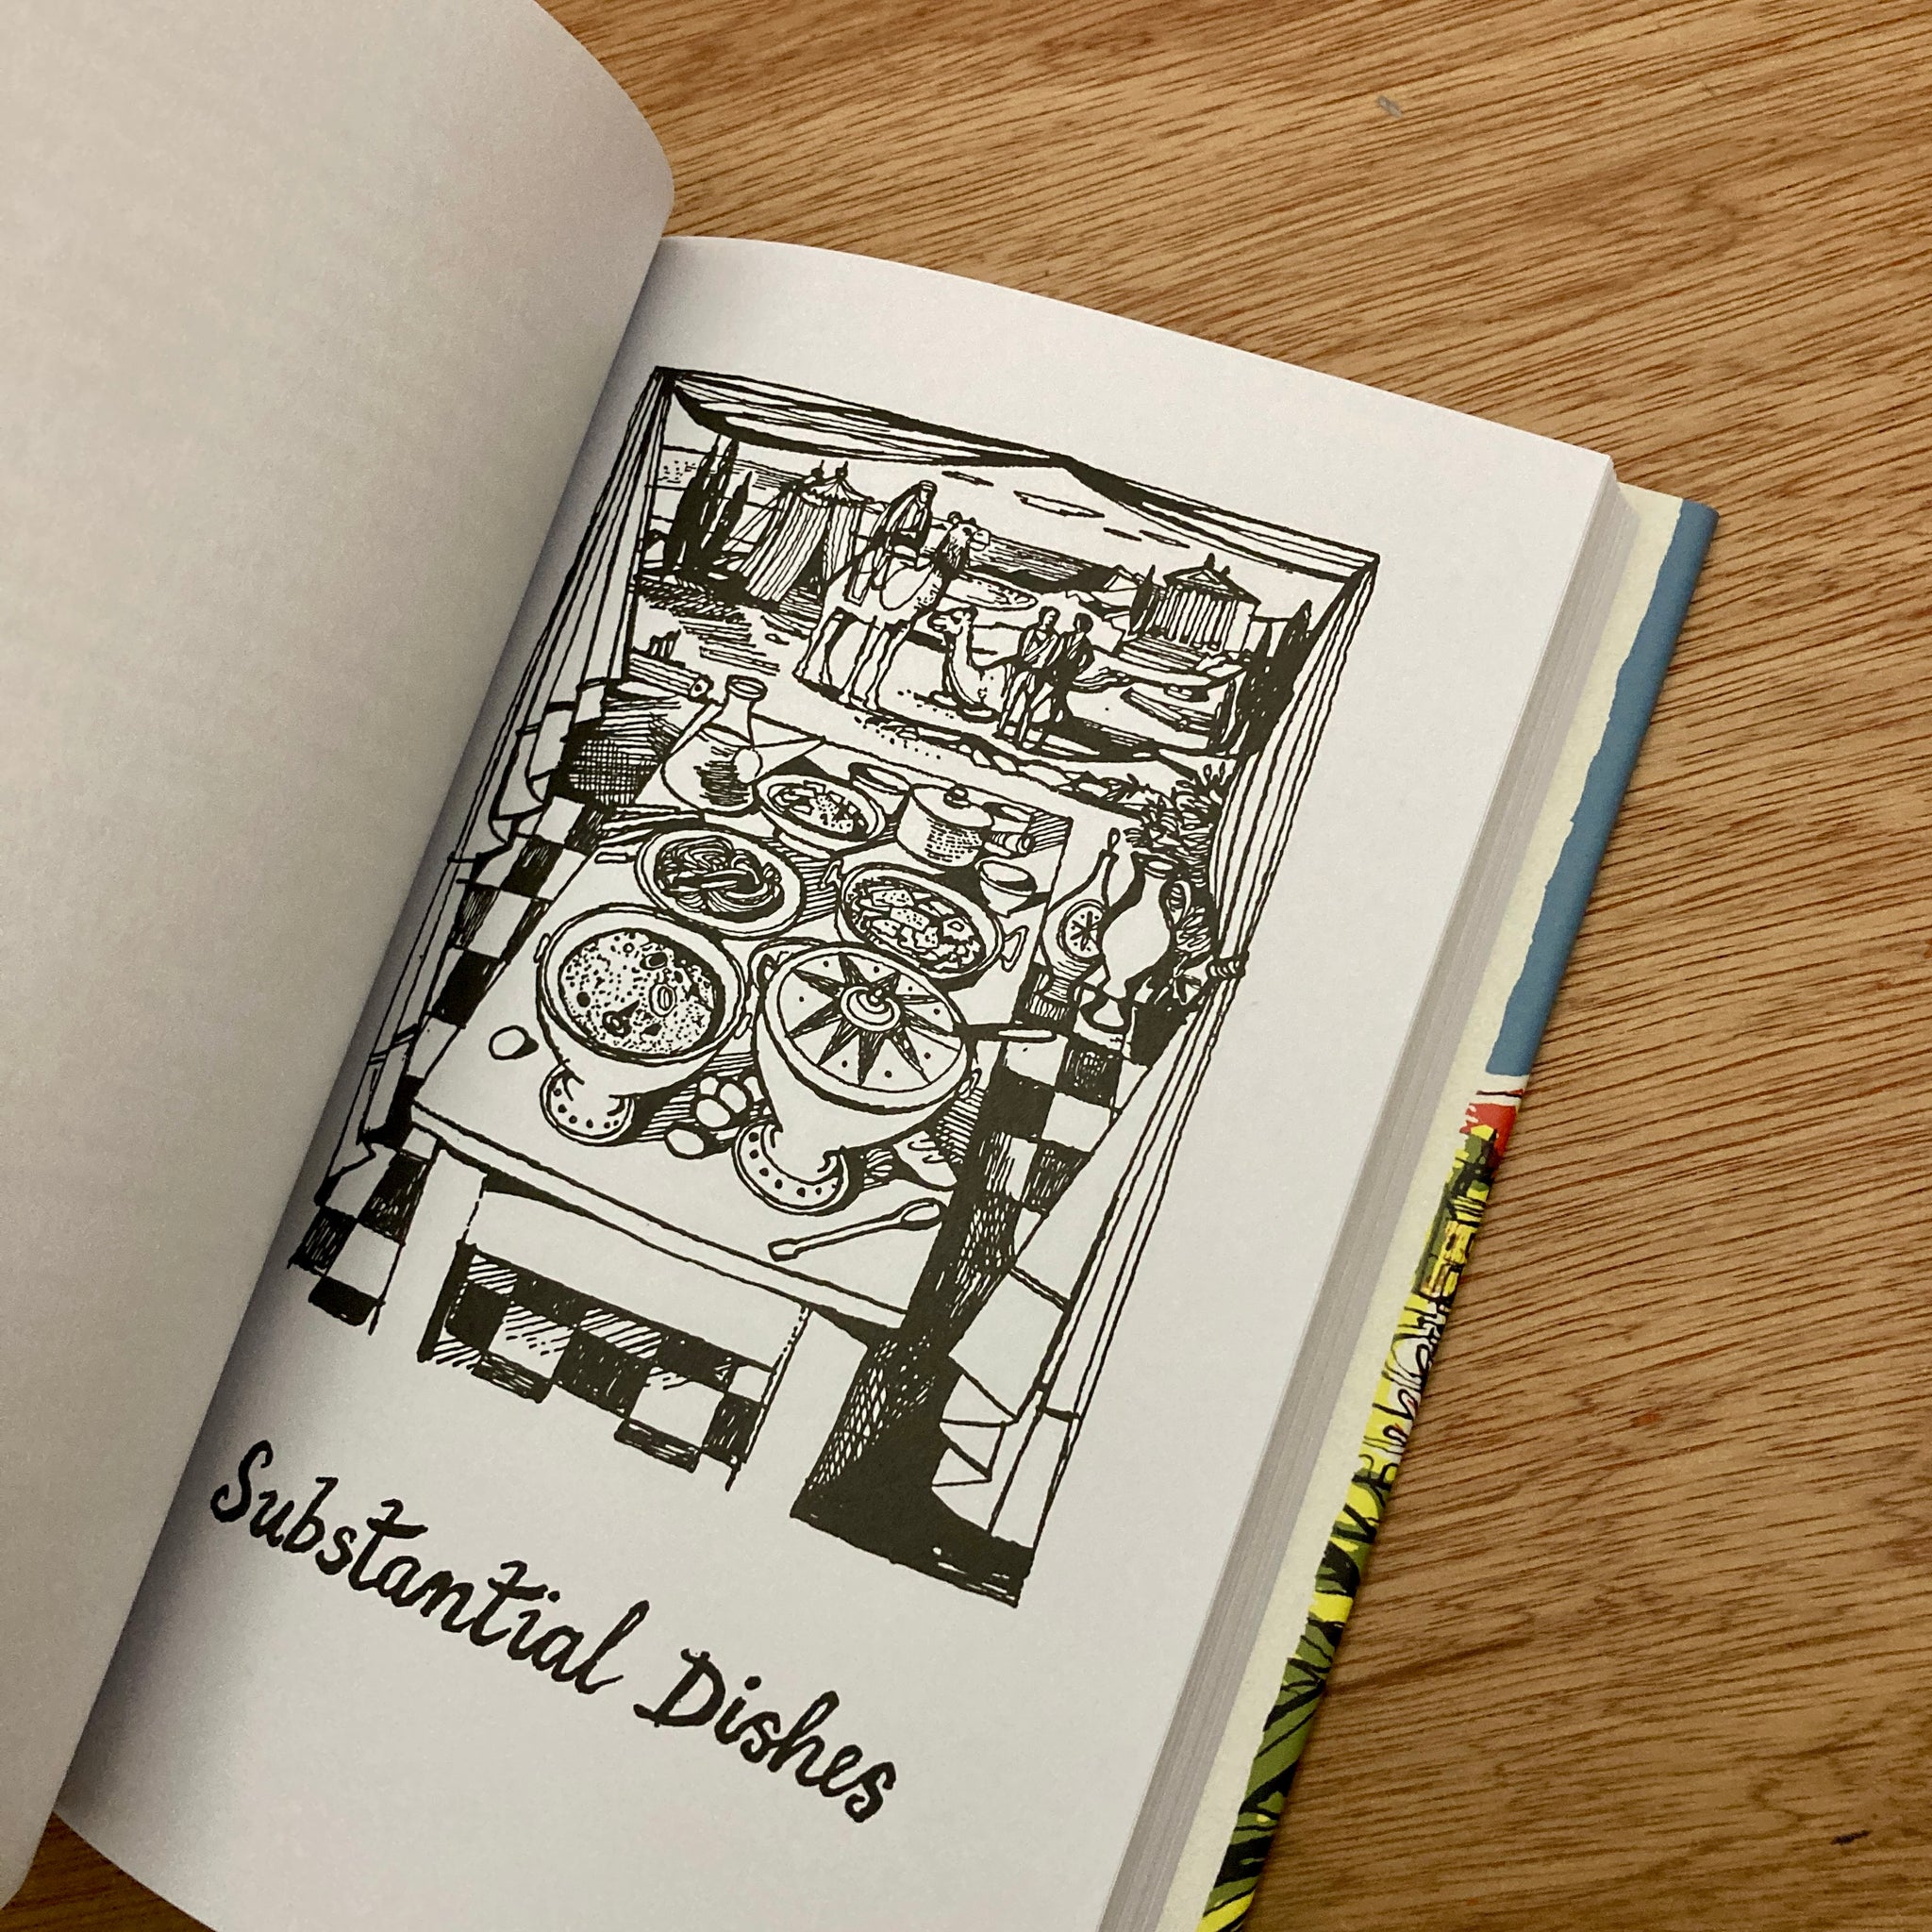 Substantial Dishes